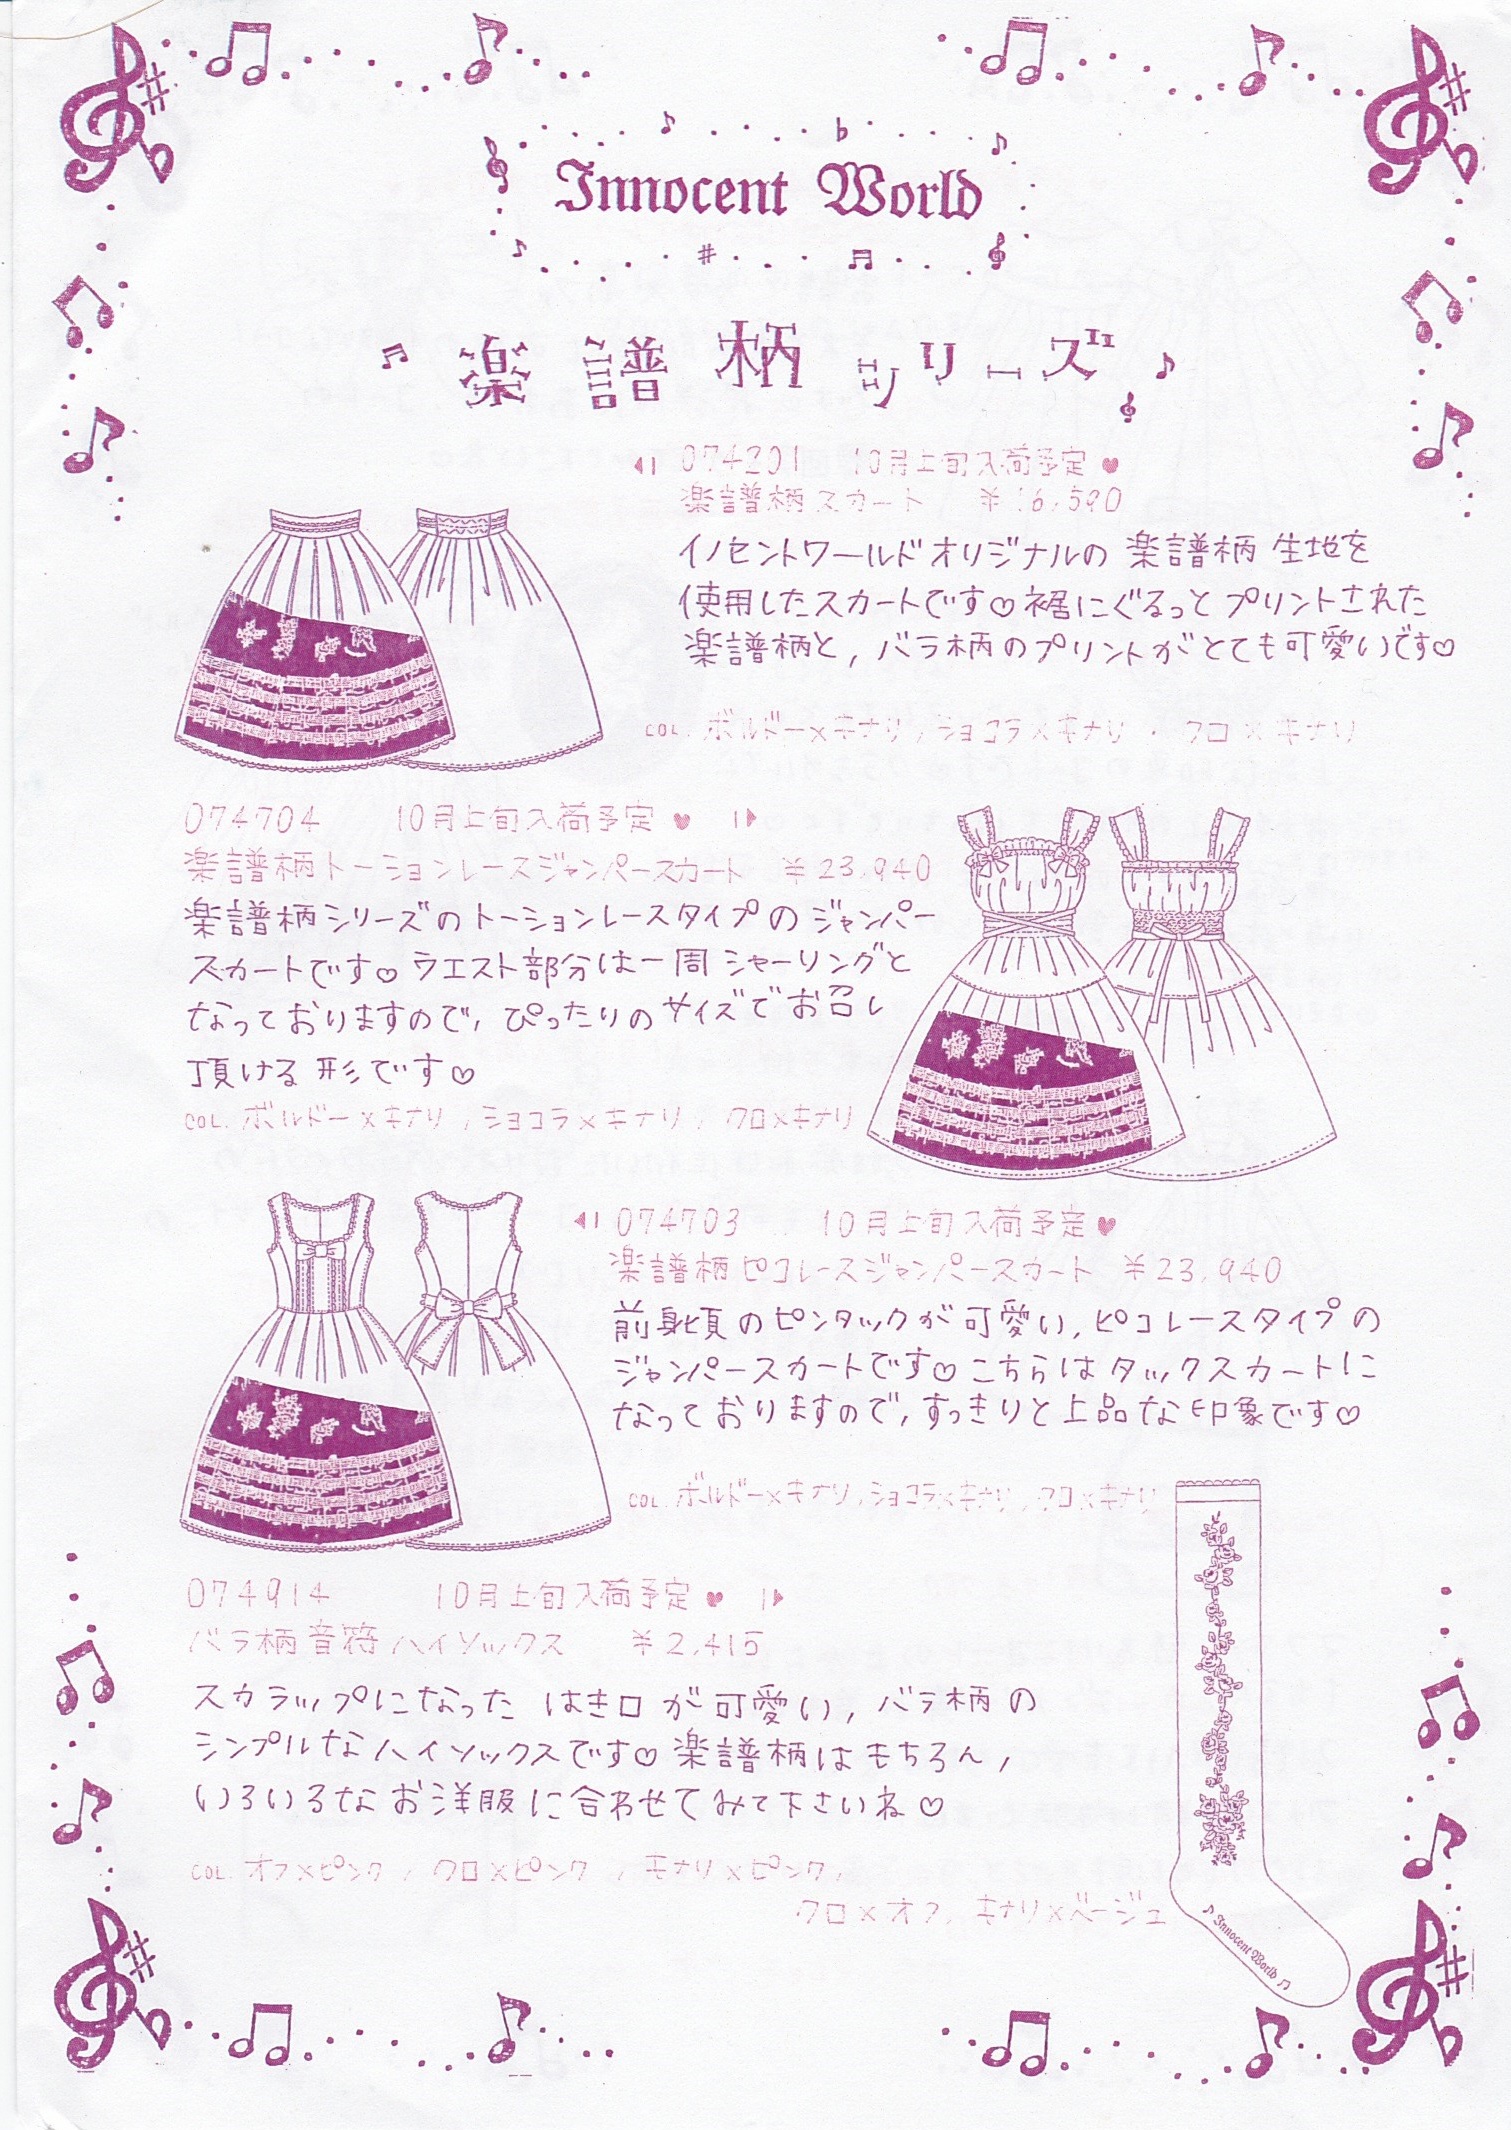 Innocent World
楽譜柄シリーズ
074201 10月上旬入荷予定♥
楽譜柄スカート ¥16,590
イノセントワールドオリジナルの楽譜柄生地を
使用したスカートです♡裾にぐるっとプリントされた
楽譜柄と,バラ柄のプリントがとても可愛いです♡
COL.ボルドー×キナリ,ショコラ×キナリ・クロ×キナリ
074704 10月上旬入荷予定♥
楽譜柄トーションレースジャンパースカート ¥23,940
楽譜柄シリーズのトーションレースタイプのジャンパー
スカートです♡ウエスト部分は一周シャーリングと
なっておりますので,ぴったりのサイズでお召し
頂ける形です♡
COL.ボルドー×キナリ,ショコラ×キナリ,クロ×キナリ
074703 10月上旬入荷予定♥
楽譜柄ピコレースジャンパースカート ¥23,940
前身頃のピンタックが可愛い,ピコレースタイプの
ジャンパースカートです♡こちらはタックスカートに
なっておりますので,すっきりと上品な印象です♡
COL.ボルドー×キナリ,ショコラ×キナリ,クロ×キナリ
074914 10月上旬入荷予定♥
バラ柄音符ハイソックス ¥2,415
スカラップになったはき口が可愛い,バラ柄の
シンプルなハイソックスです♡楽譜柄はもちろん,
いろいろなお洋服に合わせてみて下さいね♡
COL.オフ×ピンク,クロ×ピンク,キナリ×ピンク,
クロ×オフ,キナリ×ベージュ
♪Innocent World♫